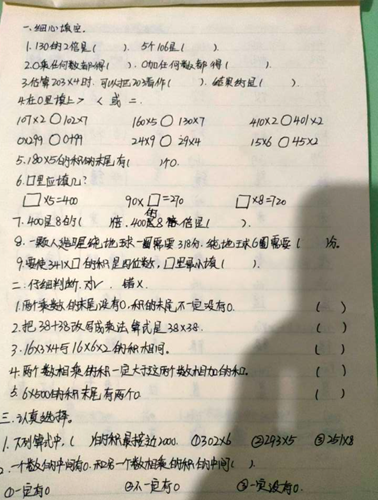 一.细心填空.
1.130的2倍是(    ). 5个106是(    ).
2.0乘任何数都得(    ). 0加任何数都得(    ).
3.估算203×4时.可以把203看作(    ). 结果约是(    ).
4.在○里填上> < 或 =.
107×2○102×7 160×5○130×7 410×2○401×2
0×299○0+99 24×9○29×4 15×6○45×2
5.180×5的积的末尾有(    )个0.
6.□里应填几?
□×5=400 90×□=270 □×8=720
7.400是8的(    )倍. 400的8倍是(    ).
8.一颗人造卫星绕地球一圈需要318分.绕地球6圈需要(    )分.
9.要使341×□的积是四位数,□里最小填(    ).
二.仔细判断.对√. 错×.
1.两个乘数的末尾没有0.积的末尾不一定没有0. (    )
2.把38+38改写成乘法算式是38×38. (    )
3.16×3×4与16×6×2的积相同. (    )
4.两个数相乘的积一定大于这两个数相加的和. (    )
5.6×500的积末尾有两个0. (    )
三.认真选择.
1.下列算式中.(    )的积最接近2000. ①302×6 ②293×5 ③251×8
2.一个数的中间有0.和另一个数相乘的积的中间(    ).
①一定有0 ②不一定有0 ③一定没有0.